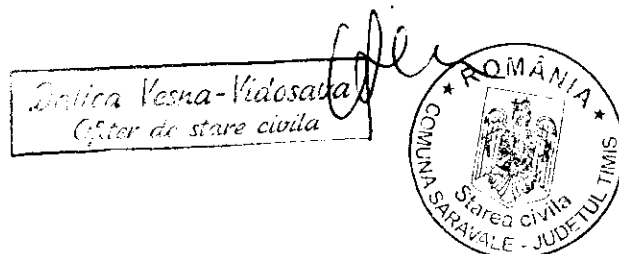 Vesna-Vidosava
Ofiter de stare civila
* ROMÂNIA *
COMUNA SARAVALE - JUDETUL TIMIS
Starea civila